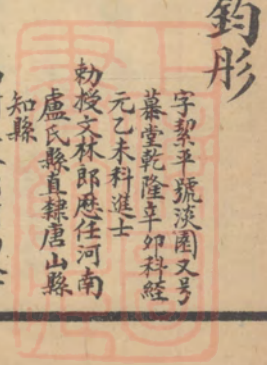 鈞彤
字絜平號淡園又号
慕堂乾隆辛卯科経
元乙未科進士
勅授文林郎歷任河南
盧氏縣直隸唐山縣
知縣